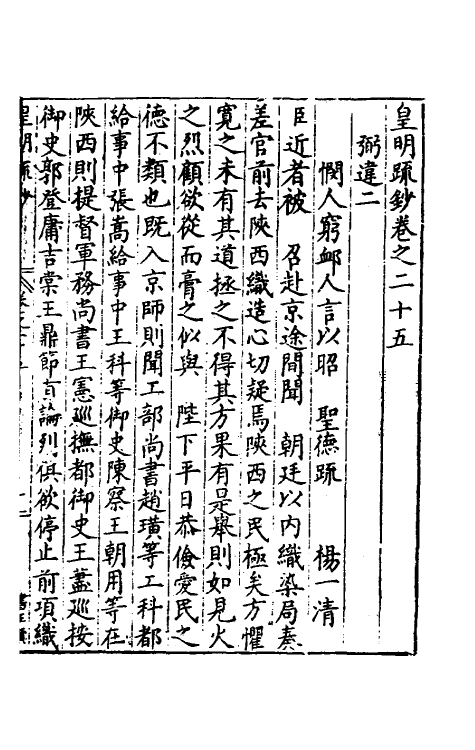 皇明疏鈔卷之二十五
弼違二
憫人窮䘏人言以昭 聖德疏 楊一清
臣近者被 召赴京途間聞 朝廷以内織染局奏
差官前去陝西織造心切疑焉陝西之民極矣方懼
寛之未有其道拯之不得其方果有是舉則如見火
之烈顧欲從而膏之似與 陛下平日恭儉愛民之
德不類也既入京師則聞工部尚書趙璜等工科都
給事中張嵩給事中王科等御史陳察王朝用等在
陝西則提督軍務尚書王憲巡撫都御史王藎巡按
御史郭登庸吉棠王鼎節有論列俱欲停止前項織
皇明疏鈔